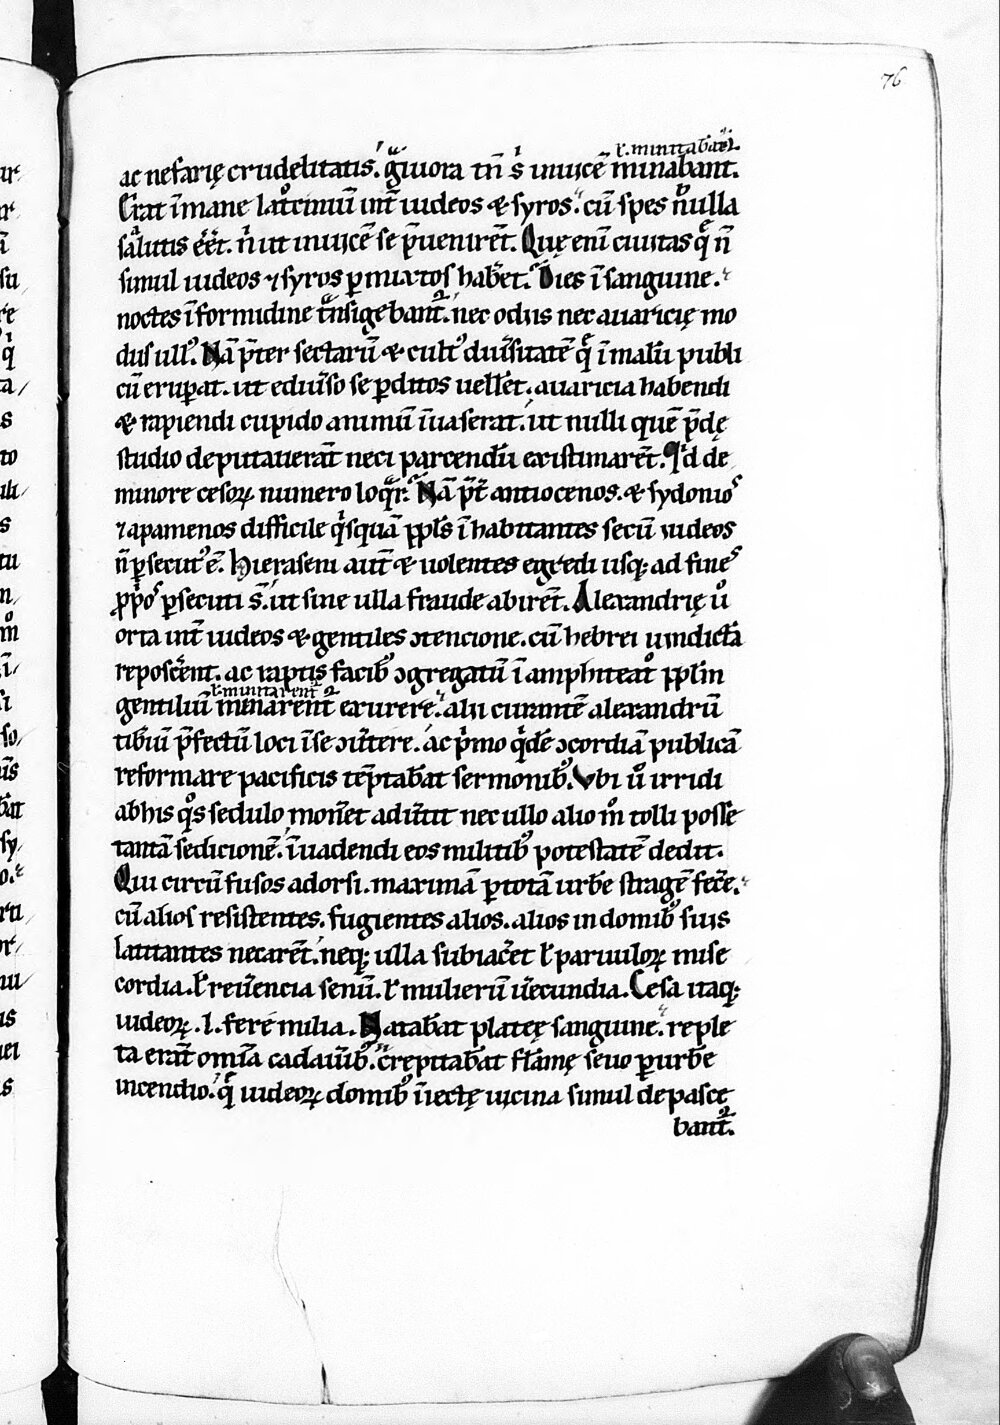 76
ł. minitabãt᷑
ac nefarię crudelitatis. g̃uiora tñ s; inuicẽ minabant.
Erat ĩmane latͦciniũ int̃ iudeos & syros. cũ spes nͣulla
salutis eẽt. ñ ut inuicẽ se p̃uenirẽt. Quę eni ciuitas q̃ ñ
simul iudeos ⁊ syros pmixtos habẽt. Dies ĩ sanguine.
noctes ĩ formidine tͣnsigebant᷑. nec odiis nec auaricię mo
dus ull᷒. Nã p̃ter sectarũ & cult᷒ duĩsitatẽ q̃ ĩ malũ publi
cũ eruperat. ut eduĩso se pditos uellẽt. auaricia habendi
& rapiendi cupido animũ ĩuaserat. ut nulli quẽ p̃dę
studio deputauerãt neci parcendũ existimarẽt. Qͥd de
minore cesoꝝ numero loqͣr. Nã p̃t antiocenos. & sydonios
⁊ apamenos difficile qͥsquã ppl̃s ĩhabitantes secũ iudeos
ñ psecut᷒ ẽ. Hieraseni aut̃ & uolentes egredi usq; ad fines
ꝓpͥos psecuti s̃. ut sine ulla fraude abirẽt. Alexandrię uͦ
orta int̃ iudeos & gentiles ɔtencione. cũ hebrei uindictã
reposcẽnt. ac raptis facib᷒ ɔgregatũ ĩ amphiteatͦ ppl̃m
ł. minitarent᷑
gentiliũ minarent᷑ exurere. alii curantẽ alexandrũ
tibiũ p̃fectũ loci ĩse ɔũtere. ac pͥmo qͥdẽ ɔcordiã publicã
reformare pacificis tẽptabat sermonib᷒. Vbi uͦ irridi
abhis qͦs sedulo monẽt adũtit nec ullo alio mͦ tolli posse
tantã sedicionẽ. ĩuadendi eos militib᷒ potestatẽ dedit.
Qui circũfusos adorsi. maximã ptotã urbe stragẽ fecẽ.
cũ alios resistentes. fugientes alios. alios in domib᷒ suis
latitantes necarẽt. neq; ulla subiacẽt ł paruuloꝝ mise
cordia. ł reuẽencia senũ. ł mulierũ uẽecundia. Cesa itaq;
iudeoꝝ .l. ferẽ milia. Natabat plateę sanguine. reple
ta erãt omĩa cadauĩb᷒. c̃repitabat flãmę seuo purbe
incendio. q̃ iudeoꝝ domib᷒ ĩiectę uicina simul depasce
bant᷑.